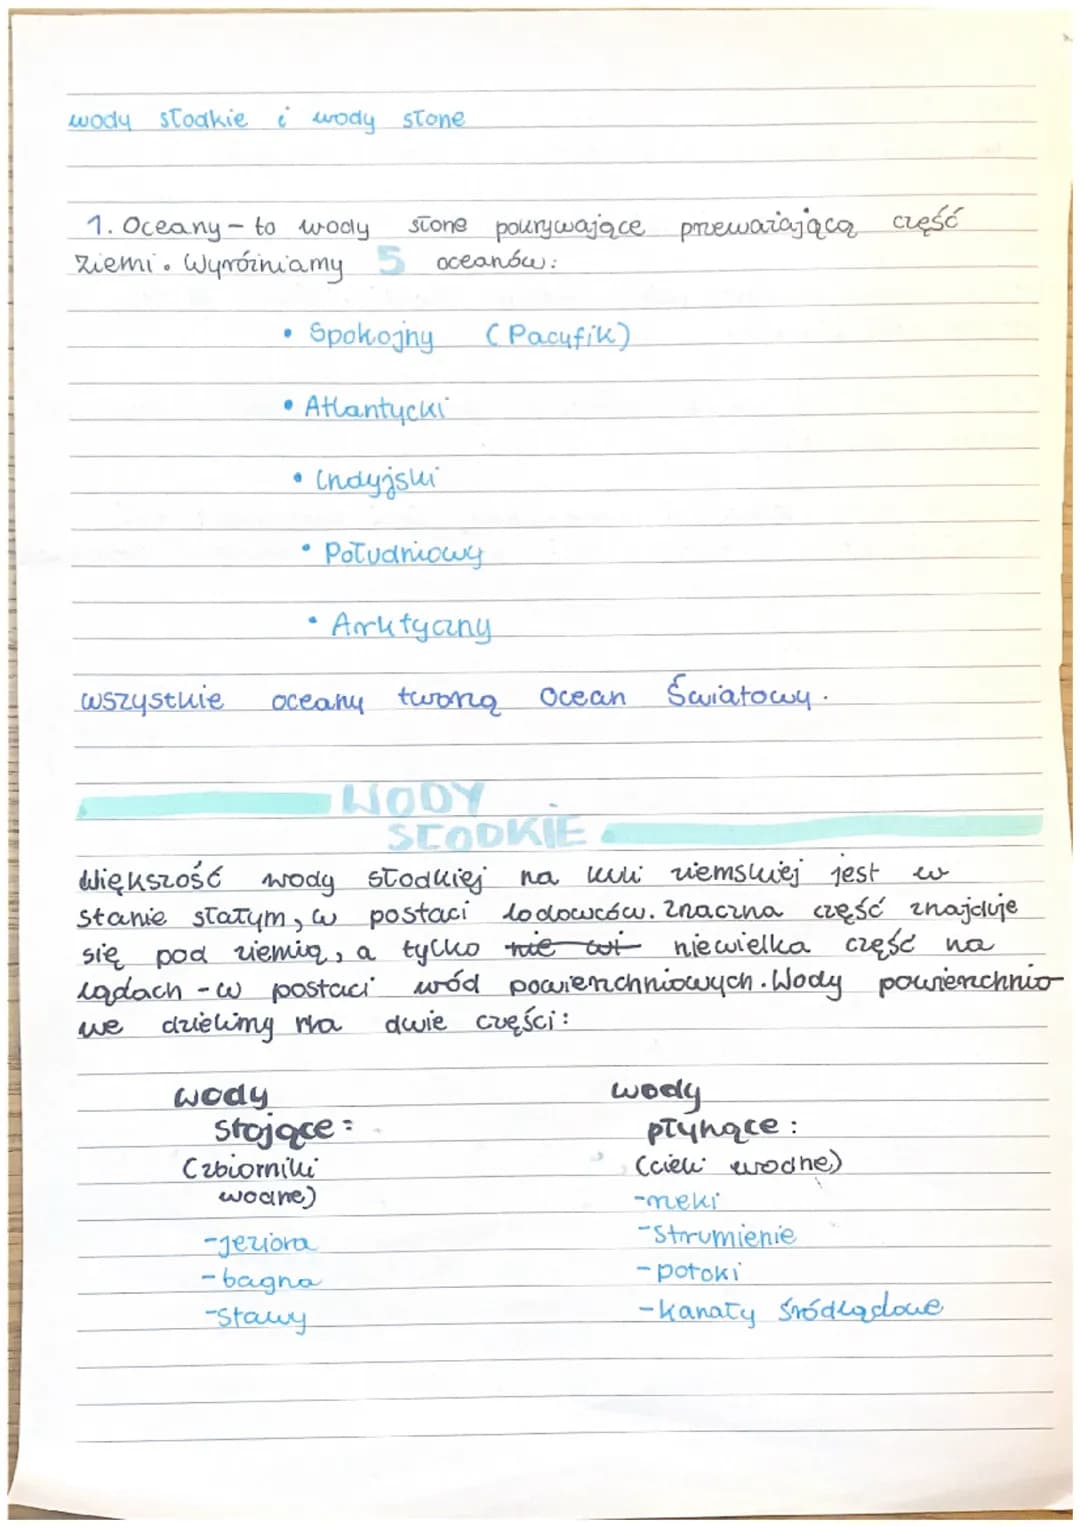 wody słodkie i wody słone
1. Oceany - to wody słone pokrywające przeważającą część
ziemi. Wyróżniamy 5 oceanów:
• Spokojny (Pacyfik)
• Atlantycki
• Indyjski
• Południowy
• Arktyczny
wszystkie oceany tworzą Ocean Światowy.
WODY
SŁODKIE
Większość wody słodkiej na kuli ziemskiej jest w
stanie stałym, w postaci lodowców. Znaczna część znajduje
się pod ziemią, a tylko nie wi niewielka część na
lądach - w postaci wód powierzchniowych. Wody powierzchnio
we dzielimy na dwie części:
wody
stojące:
(zbiorniki
wodne)
- jeziora
- bagna
- stawy
wody
płynące:
(cieki wodne)
- rzeki
- strumienie
- potoki
- kanały śródlądowe